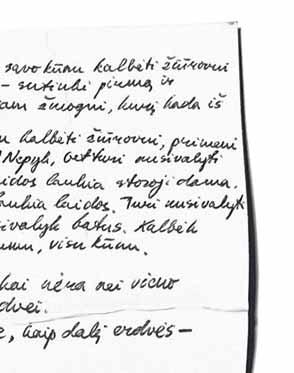 savo kūnu kalbėti žiūrovui
– sutinki pirmą ir
am žmogui, kurį kada iš
u kalbėti žiūrovui, primeni
Nepyk, bet turi nusivalyti
aidos laukia storoji dama.
laukia laidos. Turi nusivalyti
sivalyk batus. Kalbėk
umu, visu kūnu.
kai nėra nei vieno
dvei.
e, kaip dalį erdvės –